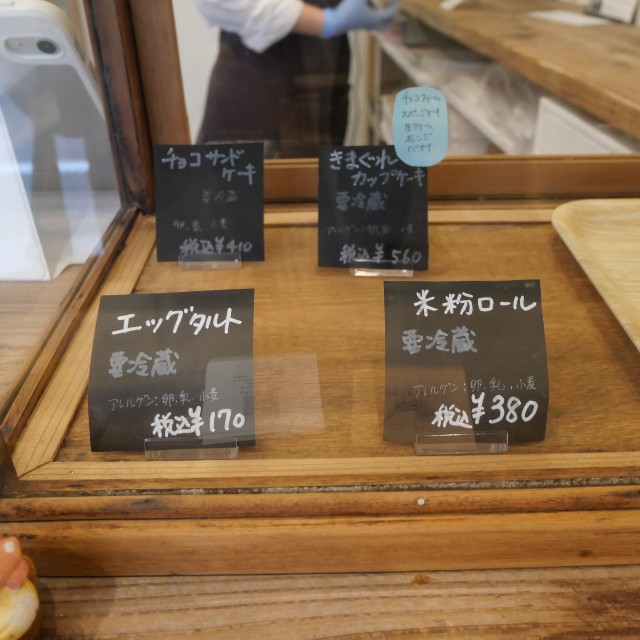 チョコサンド
ケーキ
要冷蔵
卵、乳、小麦
税込¥410
きまぐれ
カップケーキ
要冷蔵
アレルゲン:卵、乳、小麦
税込¥560
チョコクリーム
スポンジ
生クリーム
オレンジ
です
エッグタルト
要冷蔵
アレルゲン:卵、乳、小麦
税込¥170
米粉ロール
要冷蔵
アレルゲン:卵、乳、小麦
税込¥380